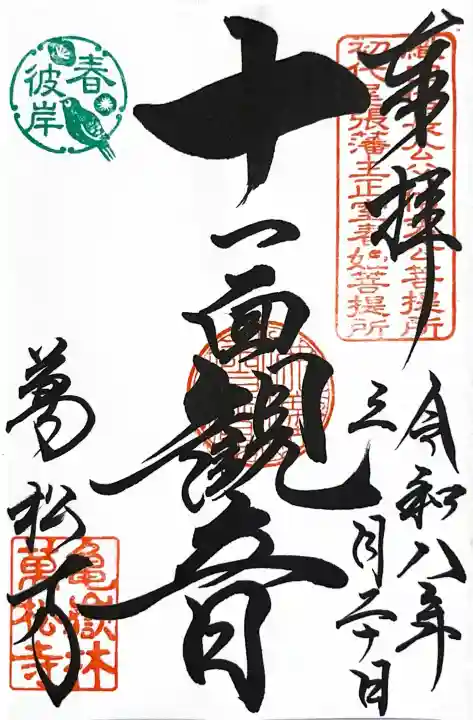 奉拝
令和八年
三月二十日
十一面観音
萬松寺
春
彼岸
初代尾張藩主正室春姫菩提所
亀嶽林
萬松寺